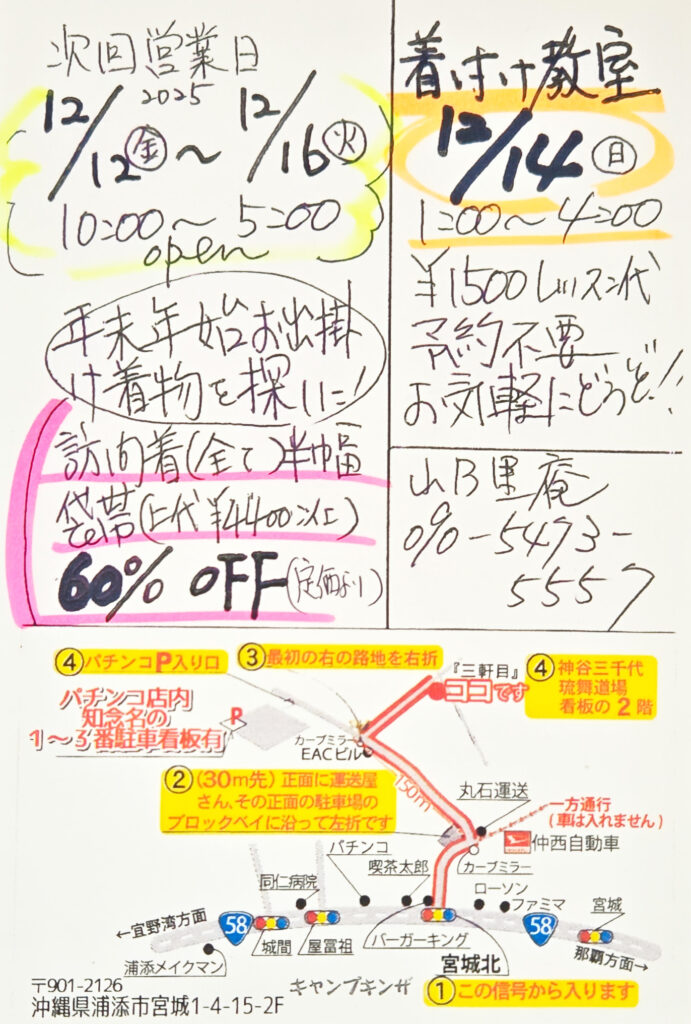 次回営業日
2025
12/12㊎～12/16㊋
10:00～5:00
open
年末年始お出掛
け着物を探しに!
訪問着(全て)半幅
袋帯(上代¥4400以上)
60% OFF(定価より)
着付け教室
12/14㊐
1:00～4:00
¥1500レッスン代
予約不要
お気軽にどうぞ!!
090-5473-
5557
④パチンコP入り口
③最初の右の路地を右折
『三軒目』
ココです
④神谷三千代
琉舞道場
看板の2階
パチンコ店内
知念名の
1～3番駐車看板有
P
カーブミラー
EACビル
150m
②(30m先)正面に運送屋
さん、その正面の駐車場の
ブロックベイに沿って左折です
丸石運送
一方通行
(車は入れません)
仲西自動車
カーブミラー
パチンコ
喫茶太郎
同仁病院
ローソン
ファミマ
宮城
←宜野湾方面
58
城間
屋富祖
バーガーキング
宮城北
58
那覇方面→
浦添メイクマン
キャンプキンザー
①この信号から入ります
〒901-2126
沖縄県浦添市宮城1-4-15-2F